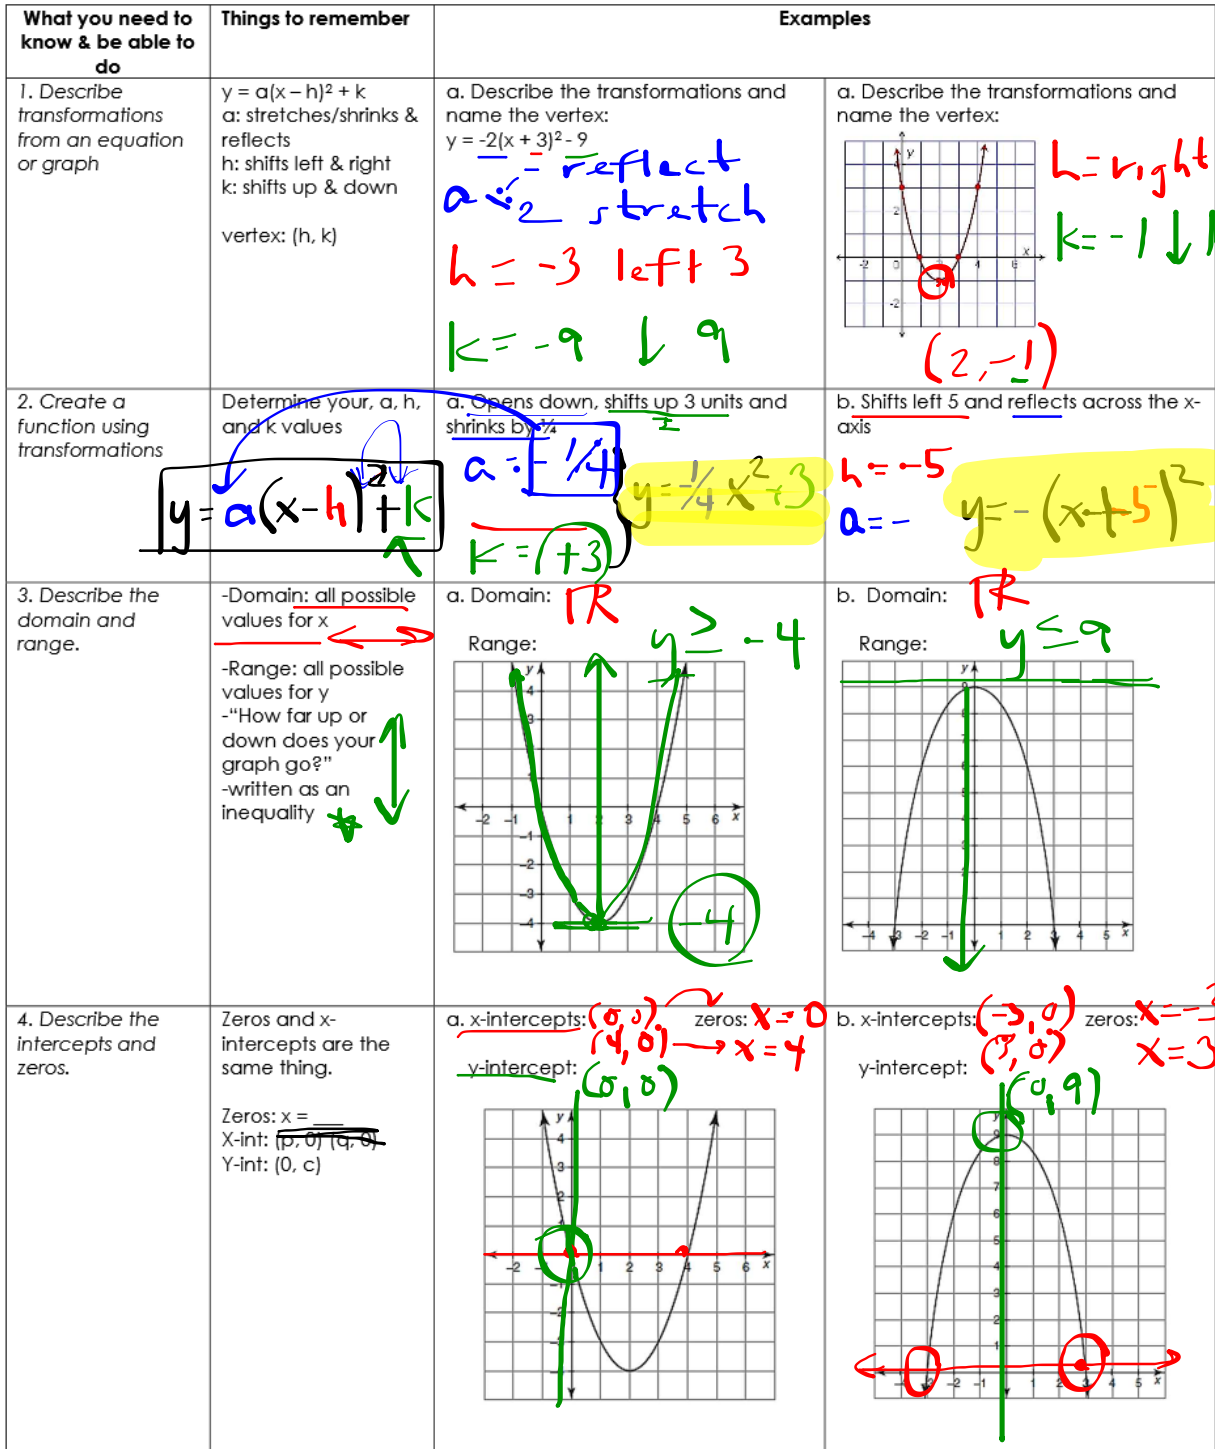 What you need to know & be able to do
Things to remember
Examples
1. Describe
transformations
from an equation
or graph
y = a(x – h)² + k
a: stretches/shrinks &
reflects
h: shifts left & right
k: shifts up & down
vertex: (h, k)
a. Describe the transformations and
name the vertex:
y = -2(x + 3)² - 9
- reflect
a
2 stretch
h = -3 left 3
k = -9 ↓ 9
a. Describe the transformations and
name the vertex:
h = right
k = -1 ↓ 1
(2, -1)
2. Create a
function using
transformations
Determine your, a, h,
and k values
y = a(x-h)² + k
a. Opens down, shifts up 3 units and
shrinks by ¼
a = -1/4
k = (+3)
y = -1/4 x² + 3
b. Shifts left 5 and reflects across the x-
axis
h = -5
a = -
y = -(x+5)²
3. Describe the
domain and
range.
-Domain: all possible
values for x
-Range: all possible
values for y
-“How far up or
down does your
graph go?”
-written as an
inequality
a. Domain: ℝ
Range: y ≥ -4
-4
b. Domain: ℝ
Range: y ≤ 9
4. Describe the
intercepts and
zeros.
Zeros and x-
intercepts are the
same thing.
Zeros: x = __
X-int: (p, 0) (q, 0)
Y-int: (0, c)
a. x-intercepts: (0,0) zeros: x = 0
(4,0) → x = 4
y-intercept: (0,0)
b. x-intercepts: (-3,0) zeros: x = -3
(3,0) x = 3
y-intercept: (0,9)